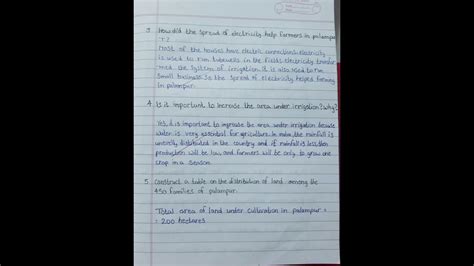 3 How did the spread of electricity help farmers in palampur
?
Most of the houses have electric connections. Electricity
is used to run tubewells in the fields. electricity transfor
med the system of irrigation. it is also used to run
Small business. So the spread of electricity helped farming
in palampur.
4 Is it important to increase the area under irrigation? why?
Yes, it is important to increase the area under irrigation because
water is very essential for agriculture. In India, the rainfall is
unevenly distributed in the country and if rainfall is less then
production will be low, and farmers will be only to grow one
crop in a season.
5 Construct a table on the distribution of land among the
450 families of palampur.
Total area of land under cultivation in palampur =
= 200 hectares